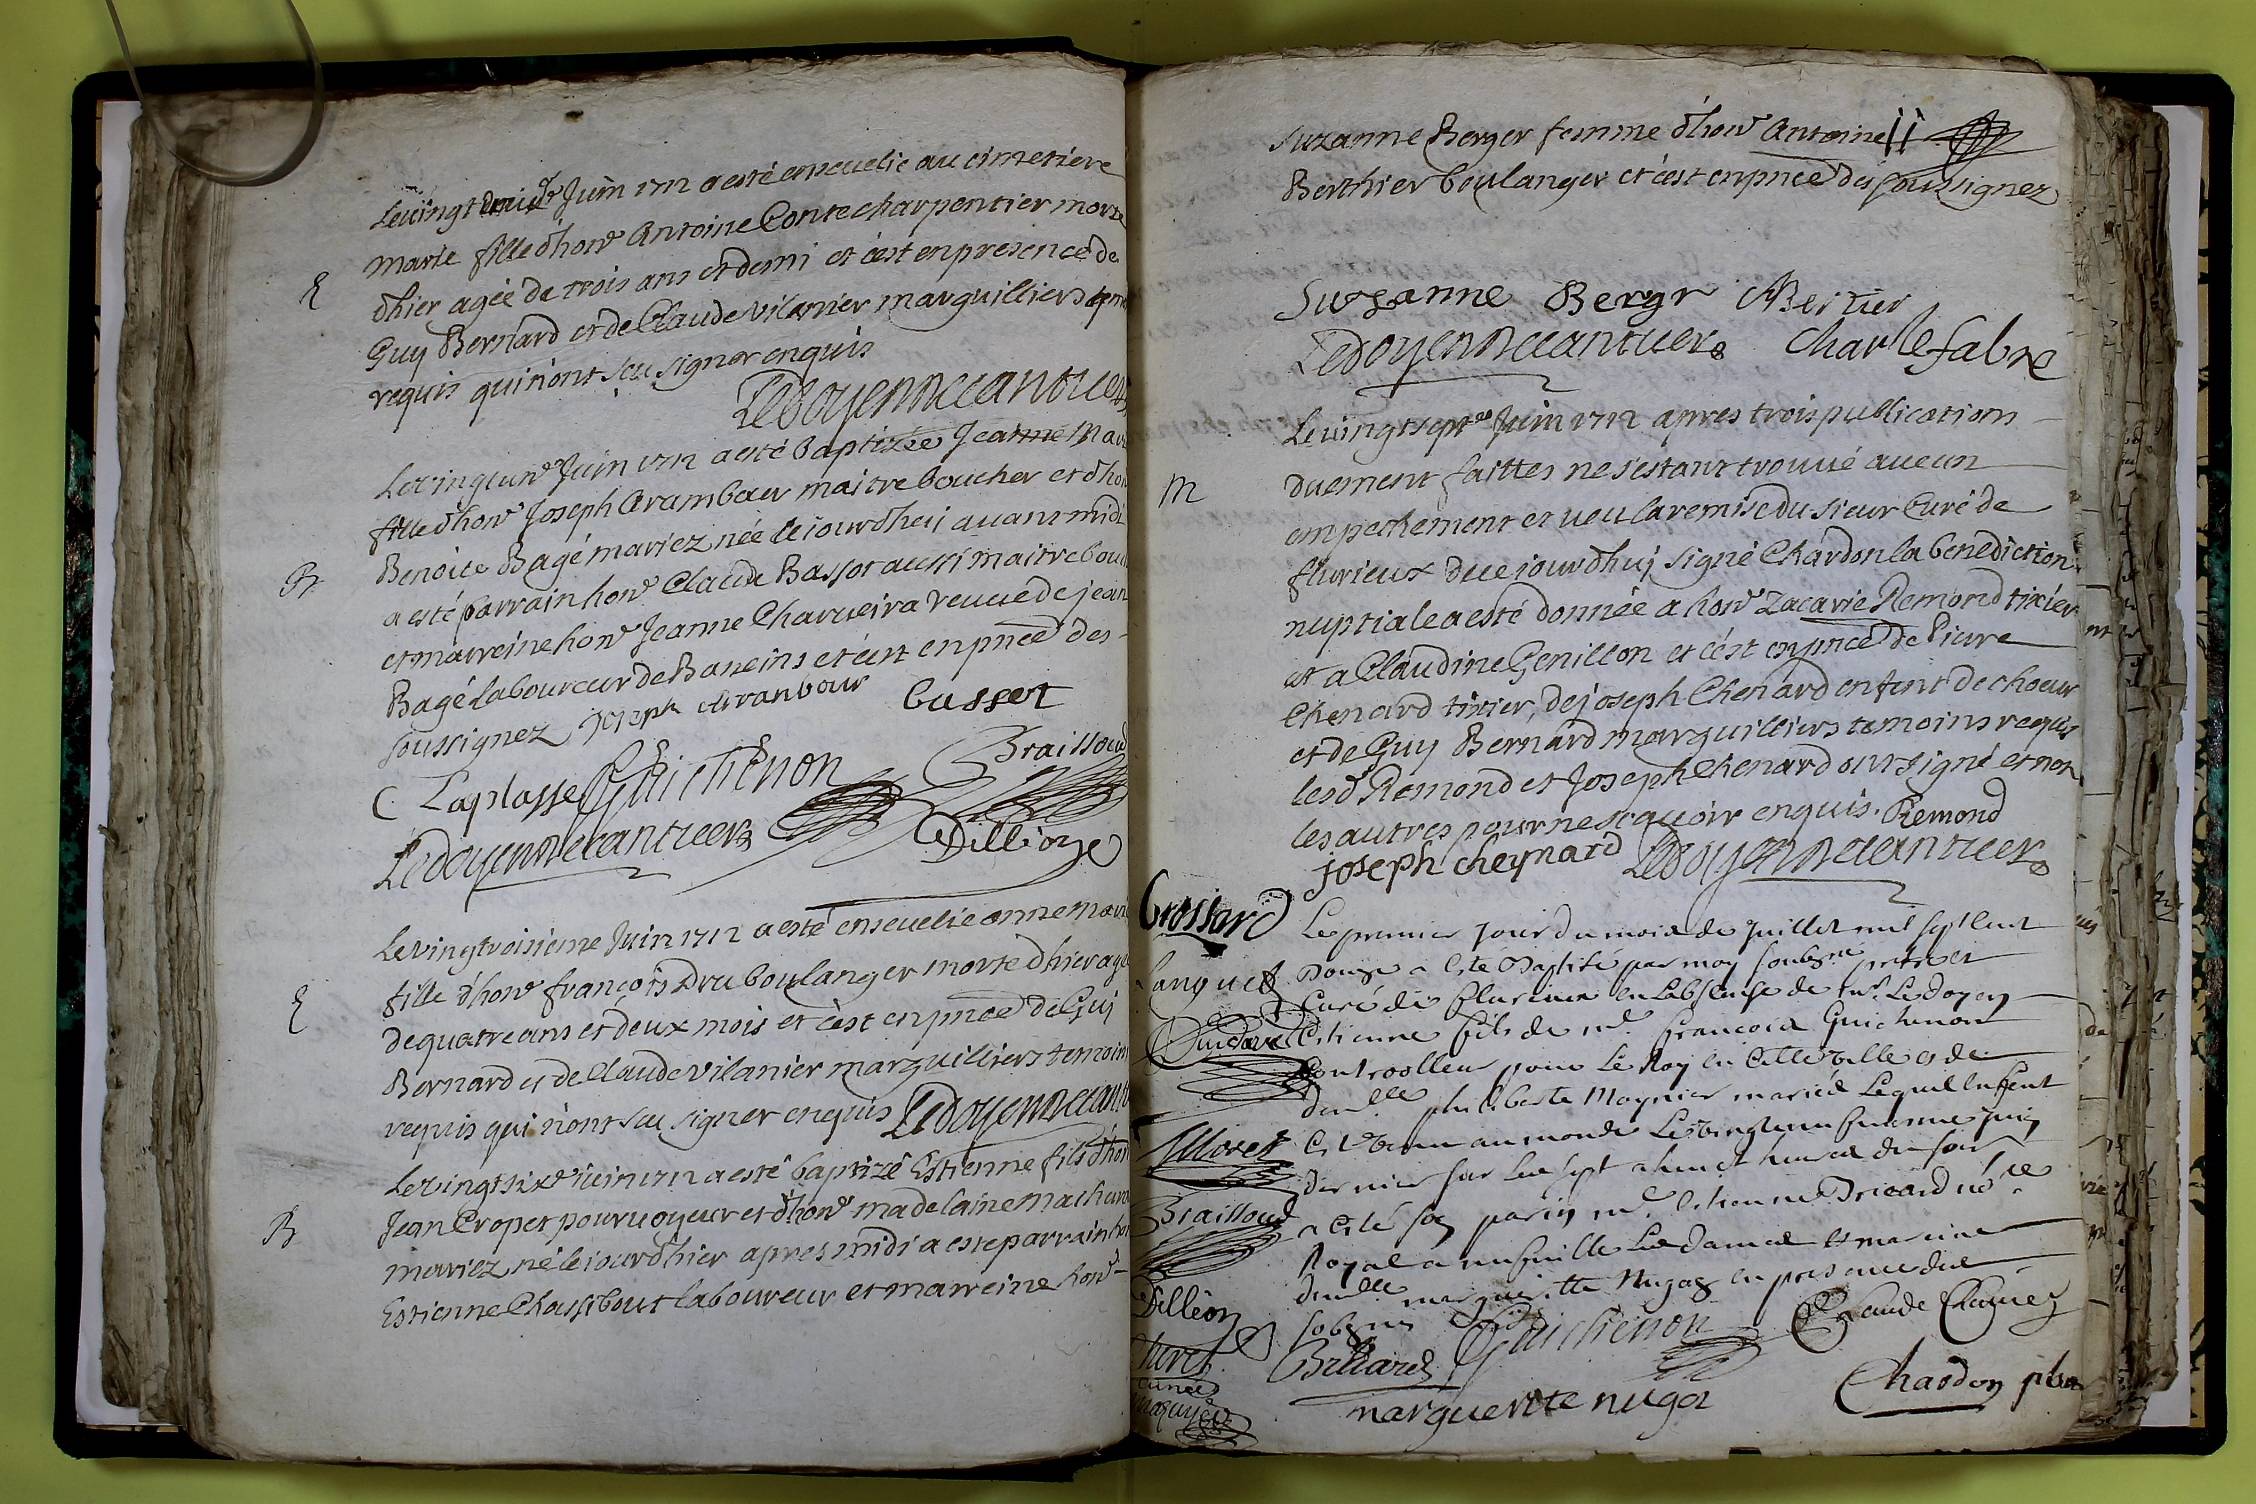 Le vingt Juin 1712 a esté enseuelie au cimetiere
marie fille d'hon.e Antoine Conte charpentier morte
E
d'hier agée de trois ans et demi et c'est en presence de
Guy Bernard et de Claude Vilanier marguilliers
requis qui n'ont sçu signer enquis
Ledoyen
Le vingtun.e Juin 1712 a esté baptizée Jeanne Mari
fille d'hon.e Joseph Arambour maitre boucher et d'hon
Benoite Bagé mariez née le iourd'hui auant midi
B
a esté parrain hon.e Claude Bassot aussi maitre bou
et marreine hon.e Jeanne Charveira veuve de jean
Bagé laboureur de Baneins et c'est en pnce des
soussignez Joseph Aranbour Bussot
Braissoud
C Laplasse Guichenon
Ledoyen Dillion
Le vingtroisieme Juin 1712 a esté enseuelie anne Mari
fille d'hon.e françois Dru boulanger morte d'hier agée
E
de quatre ans et deux mois et c'est en pnce de Gui
Bernard et de Claude Vilanier marguilliers temoins
requis qui n'ont sçu signer enquis Ledoyen
Le vingtsix.e iuin 1712 a esté baptizé Estienne fils d'hon
Jean Cropet pourvoyeur et d'hon.e madelaine
B
mariez né le iourd'hier apres midi a este parrain hon
Estienne Chassibout laboureur et marreine hon.e
Suzanne Berger femme d'hon.e Antoine
Berthier boulanger et c'est en pnce des soussignez
Suzanne Bergr Bertier
Ledoyen Charle fabre
Le vingtsept.e Juin 1712 apres trois publications
duement faittes ne s'estant trouué aucun
M
empechement et ueu la remise du sieur Curé de
flurieux du ce iourd'huj signé Chardon la benediction
nuptiale a esté donnée a hon.e Zacarie Remond tixier
et a Claudine Genillon et c'est en pnce de Piere
Chenard tixier, de joseph Chenard enfent de choeur
et de Guy Bernard marguilliers temoins requis
lesd Remond et Joseph Chenard ont signé et non
les autres pour ne sçauoir enquis. Remond
joseph cheynard Ledoyen
Crossard
Le premier jour du mois de juillet mil sept cent
Languet
Douze a esté Baptisé par moy soubsne pretre et
Curé de flurieux en l'absence de mr. Le doyen
Estienne fils de mr. francois Guichenon
Controolleur pour Le Roy en cette ville et de
demlle philiberte Moynier mariés Lequel enfent
Moret
Est venu au monde Le juin
dernier sur les sept a huict heures du soir
Braissoud
a esté son parin mr. Estienne Bricard
Royal a et marine
demlle margueritte Nugoz en presence des
Dillion
Guichenon Claude
Billiard
Chardon ptre
marguerite nugoz